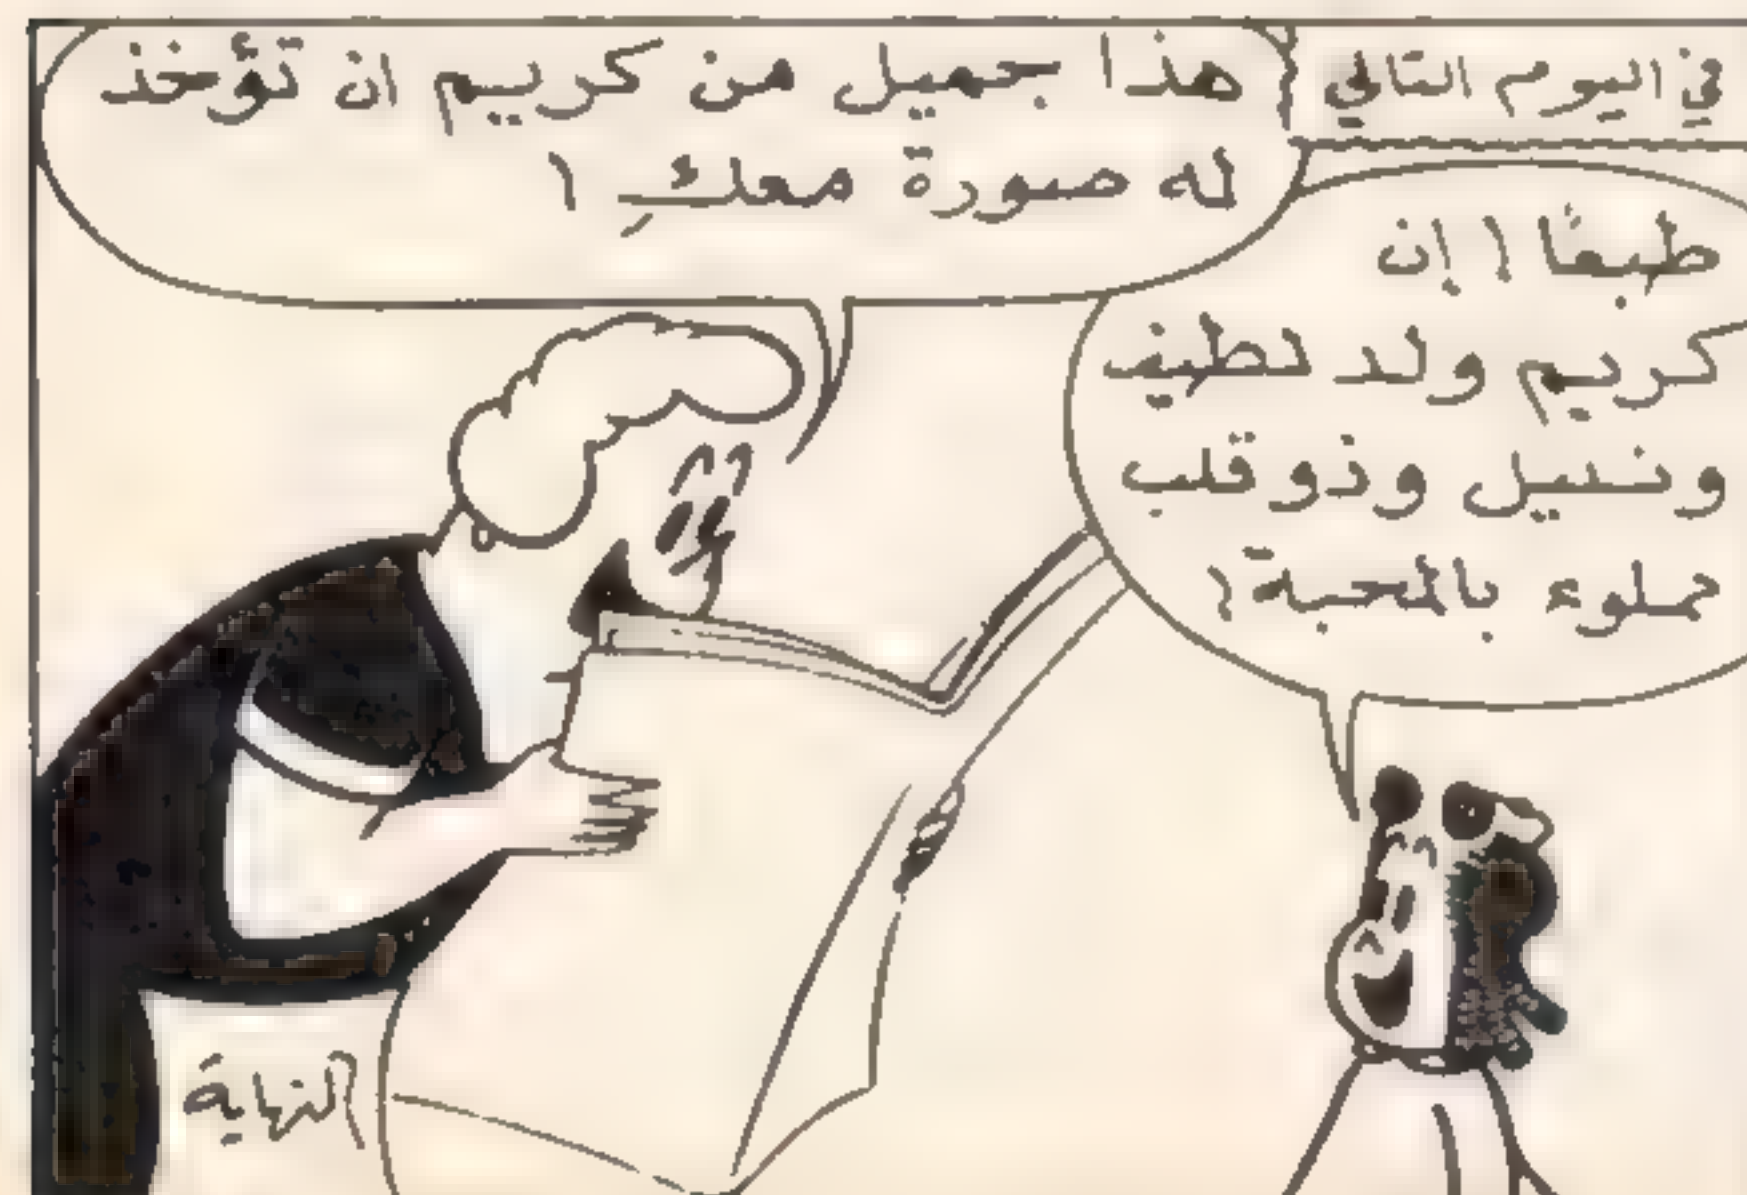 في اليوم التالي
هذا جميل من كريم ان تؤخذ
له صورة معكِ !
طبعًا ! إن
كريم ولد لطيف
ونبيل وذو قلب
مملوء بالمحبة !
النهاية